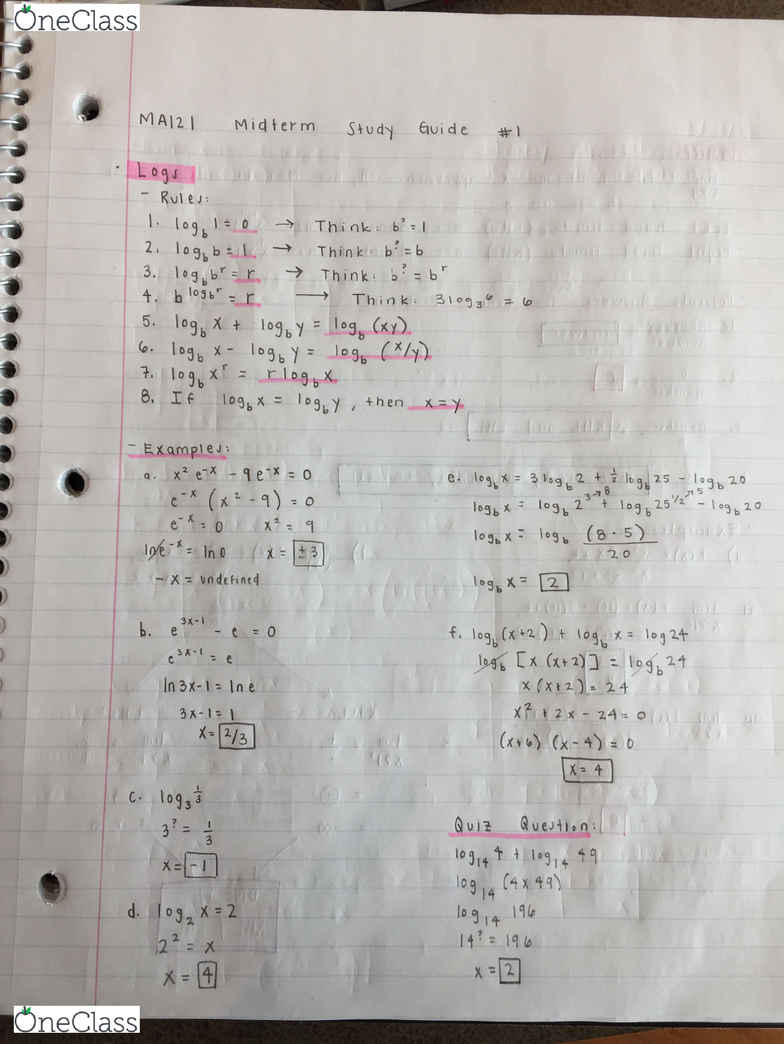 OneClass
MA121 Midterm Study Guide #1
Logs
- Rules:
1. log_b 1 = 0 → Think: b^? = 1
2. log_b b = 1 → Think: b^? = b
3. log_b b^r = r → Think: b^? = b^r
4. b^(log_b r) = r → Think: 3log_3 6 = 6
5. log_b x + log_b y = log_b (xy)
6. log_b x - log_b y = log_b (x/y)
7. log_b x^r = r log_b x
8. If log_b x = log_b y, then x = y
- Examples:
a. x² e^-x - 9e^-x = 0
e^-x (x² - 9) = 0
e^-x = 0 x² = 9
ln e^-x = ln 0 x = ±3
-x = undefined
b. e^(3x-1) - e = 0
e^(3x-1) = e
ln 3x-1 = ln e
3x-1 = 1
x = 2/3
c. log_3 1/3
3^? = 1/3
x = -1
d. log_2 x = 2
2² = x
x = 4
e. log_b x = 3 log_b 2 + 1/2 log_b 25 - log_b 20
log_b x = log_b 2^3→8 + log_b 25^1/2→5 - log_b 20
log_b x = log_b (8·5)/20
log_b x = 2
f. log_b (x+2) + log_b x = log 24
log_b [x(x+2)] = log_b 24
x(x+2) = 24
x² + 2x - 24 = 0
(x+6) (x-4) = 0
x = 4
Quiz Question:
log_14 4 + log_14 49
log_14 (4 x 49)
log_14 196
14^? = 196
x = 2
OneClass